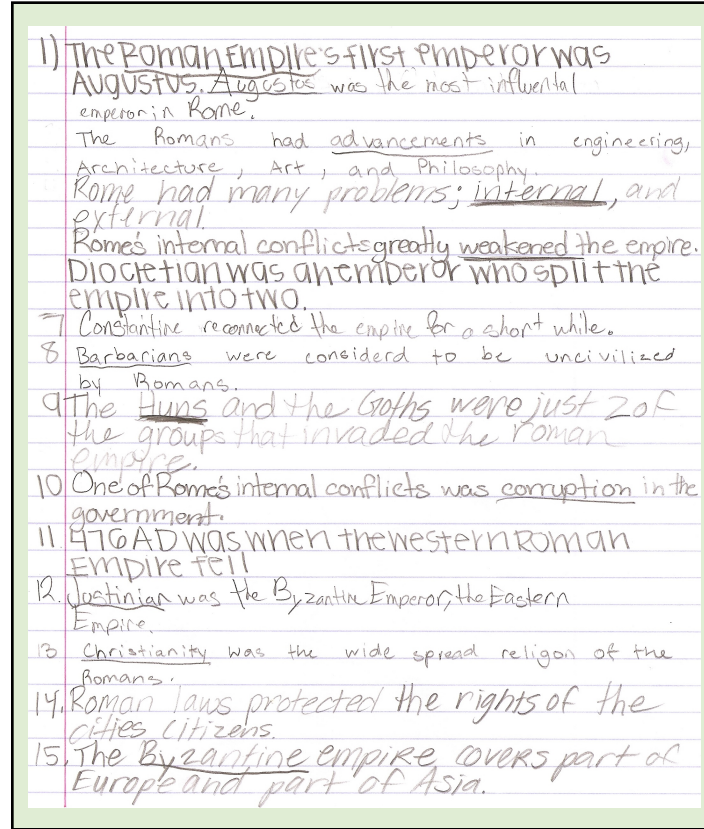 1) The Roman Empire's first emperor was
Augustus. Augustus was the most influental
emperor in Rome.
The Romans had advancements in engineering,
Architecture, Art, and Philosophy.
Rome had many problems; internal, and
external.
Rome's internal conflicts greatly weakened the empire.
Diocletian was an emperor who split the
empire into two.
7 Constantine reconnected the empire for a short while.
8 Barbarians were considerd to be uncivilized
by Romans.
9 The Huns and the Goths were just 2 of
the groups that invaded the roman
empire.
10 One of Rome's internal conflicts was corruption in the
government.
11. 476 AD was when the western Roman
Empire fell
12. Justinian was the Byzantine Emperor, the Eastern
Empire.
13 Christianity was the wide spread religon of the
Romans.
14. Roman laws protected the rights of the
cities citizens.
15. The Byzantine empire covers part of
Europe and part of Asia.